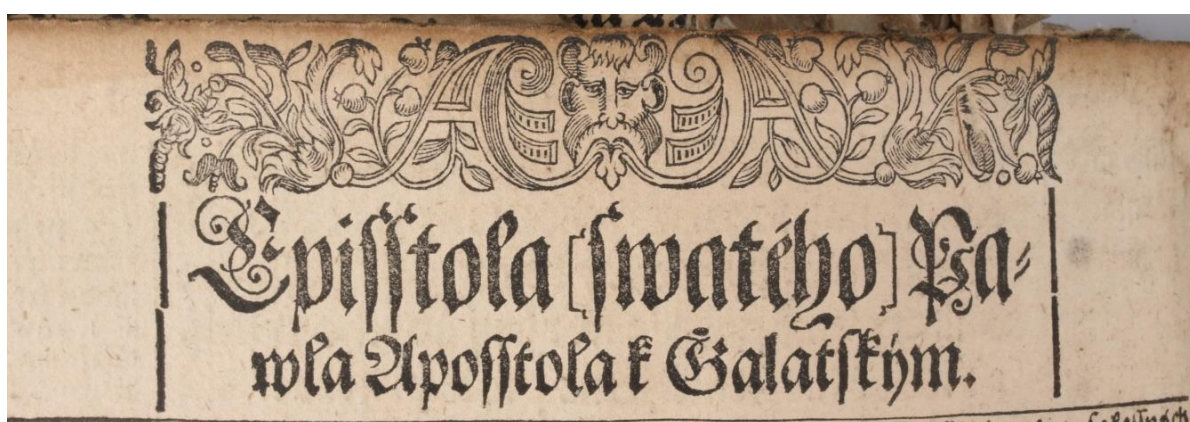 Episstola [swatého] Pa-
wla Aposstola k Galatským.